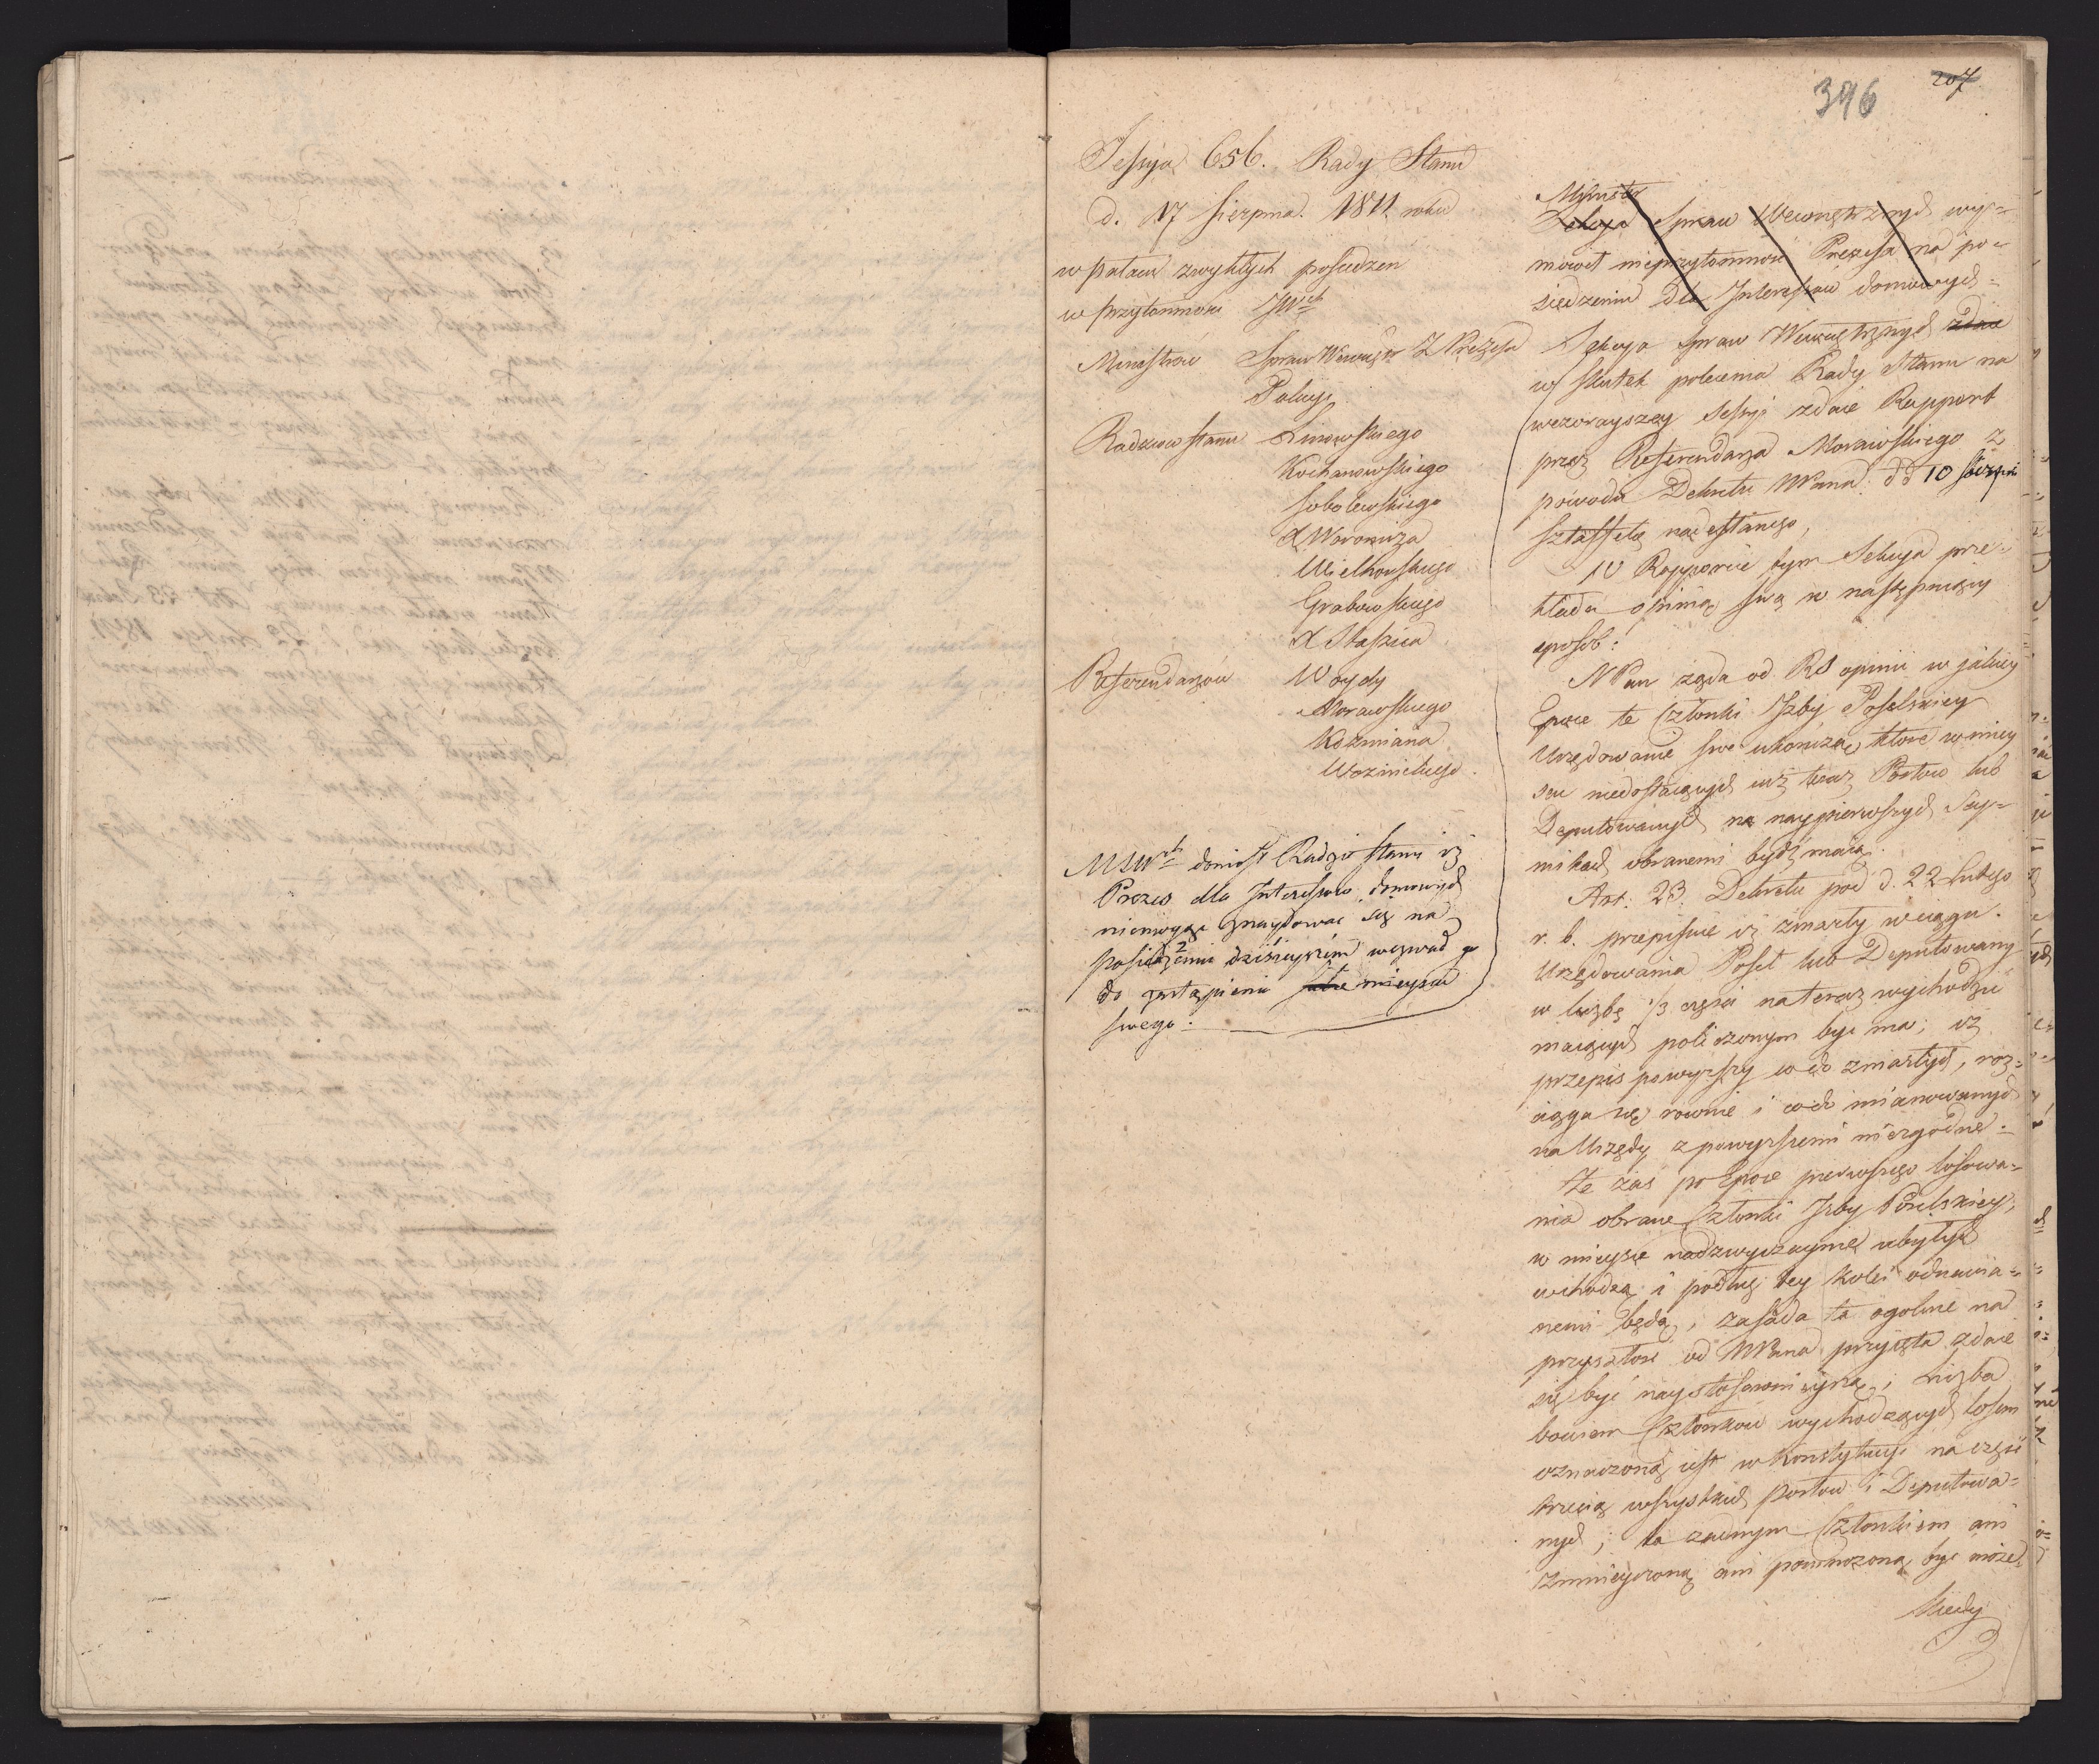 207
396
Sessyja 656. Rady Stanu
d. 17 Sierpnia. 1811 roku
w Pałacu zwykłych posiedzen
w przytomnosci JWch
Ministrow Spraw Wewnętr Z Prezesa
Policyi
Radzcow Stanu Linowskiego
Kochanowskiego
Sobolewskiego
X Woronicza
Wielhorskiego
Grabowskiego
X Staszica
Referendarzow Woydy
Morawskiego
Kozmiana
Woznickiego.
MSWch doniosł Radzie Stanu iż
Prezes dla Interessow domowych
niemogąc znaydować się na
posiedzeniu dzisieyszem wezwał go
do zastąpienia mieysca
swego.
Minister
Sekcya Spraw Wewnętrznych wy=
mowił nieprzytomność Prezesa na po=
siedzeniu dla Interessow domowych=
Sekcya Spraw Wewnętrznych zdaie
w skutek polecenia Rady Stanu na
wczorayszey Sessyi zdaie Rapport
przez Referendarza Morawskiego z
powodu Dekretu NPana dd 10 Sierpnia
sztaffetą nadesłanego,
W Rapporcie tym Sekcya prze=
kłada opinią swą w następuiący
sposob:
NPan żąda od RS opinii w jakiey
Epoce te Członki Izby Poselskiey
Urzędowanie swe ukończą, ktore w miey
scu niedostaiących iuż teraz Posłow lub
Deputowanych na naypierwszych Sey=
mikach obranemi bydź maią.
Art: 23. Dekretu pod d. 22 Lutego
r. b. przepisuie iż zmarły w ciągu
Urzędowania Poseł lub Deputowany
w liczbę 1/3 części na teraz wychodzić
maiących policzonym być ma; iż
przepis powyższy co do zmarłych, roz=
ciąga się rownie i co do mianowanych
na Urzędy z powyższemi niezgodne.
Te zas po Epoce pierwszego losowa=
nia obrane Członki Izby Poselskiey,
w mieysce nadzwyczaynie ubyłych
wchodzą i podług tey kolei odnawia=
nemi będą, zasada ta ogolnie na
przyszłosć od NPana przyięta zdaie
się być naystosownieyszą; liczba
bowiem Członkow wychodzących losem
oznaczona iest w Konstytucyi na część
trzecią wszystkich Posłow i Deputowa=
nych; ta żadnym Członkiem ani
zmnieyszoną ani pomnożoną być może.
Kiedy